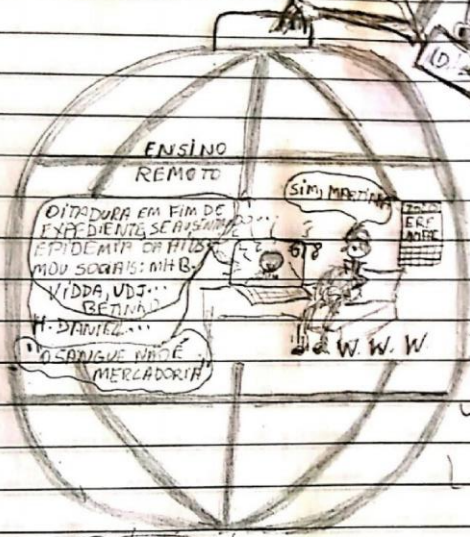 ENSINO
REMOTO
DITADURA EM FIM DE
EXPEDIENTE,
EPIDEMIA DA
MOV SOCIAIS: MHB.
VIDDA, UDJ...
BETINHO
H. DANIEL...
"O SANGUE NÃO É
MERCADORIA"
SIM, MARTINA
ERE
W. W. W